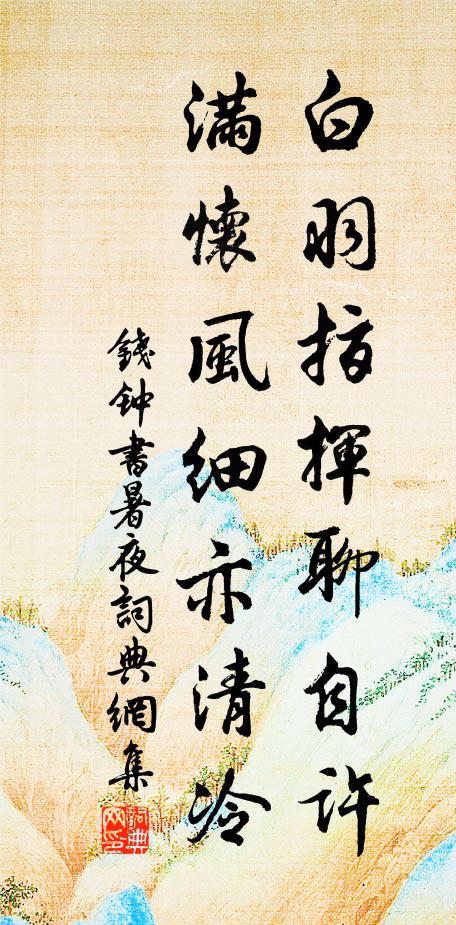 白羽指揮聊自許
滿懷風細亦清冷
錢钟書暑夜詞典網集
詞典网印